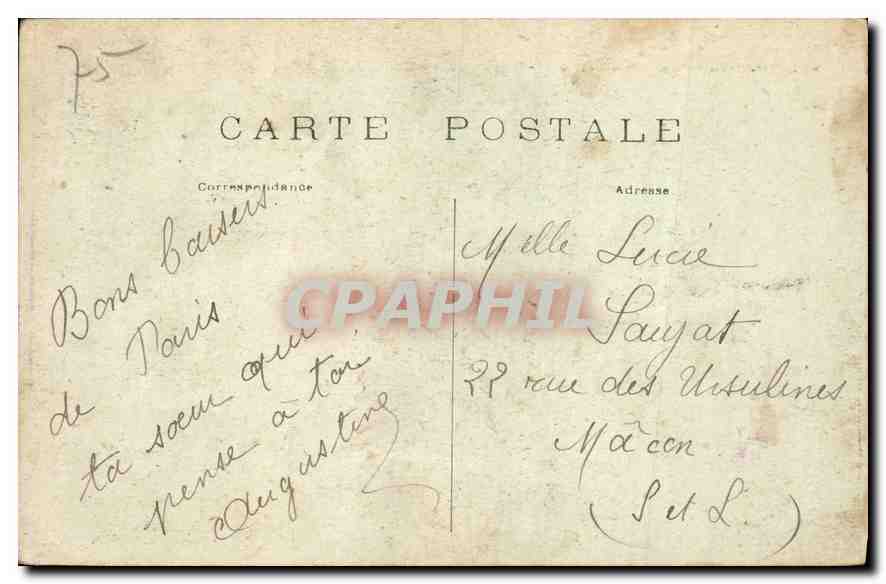 75
CARTE POSTALE
Correspondance
Adresse
Bons baisers
de Paris
ta sœur qui
pense à toi
Augustine
Melle Lucie
Sauyat
22 rue des Ursulines
Mâcon
(S et L)
CPAPHIL